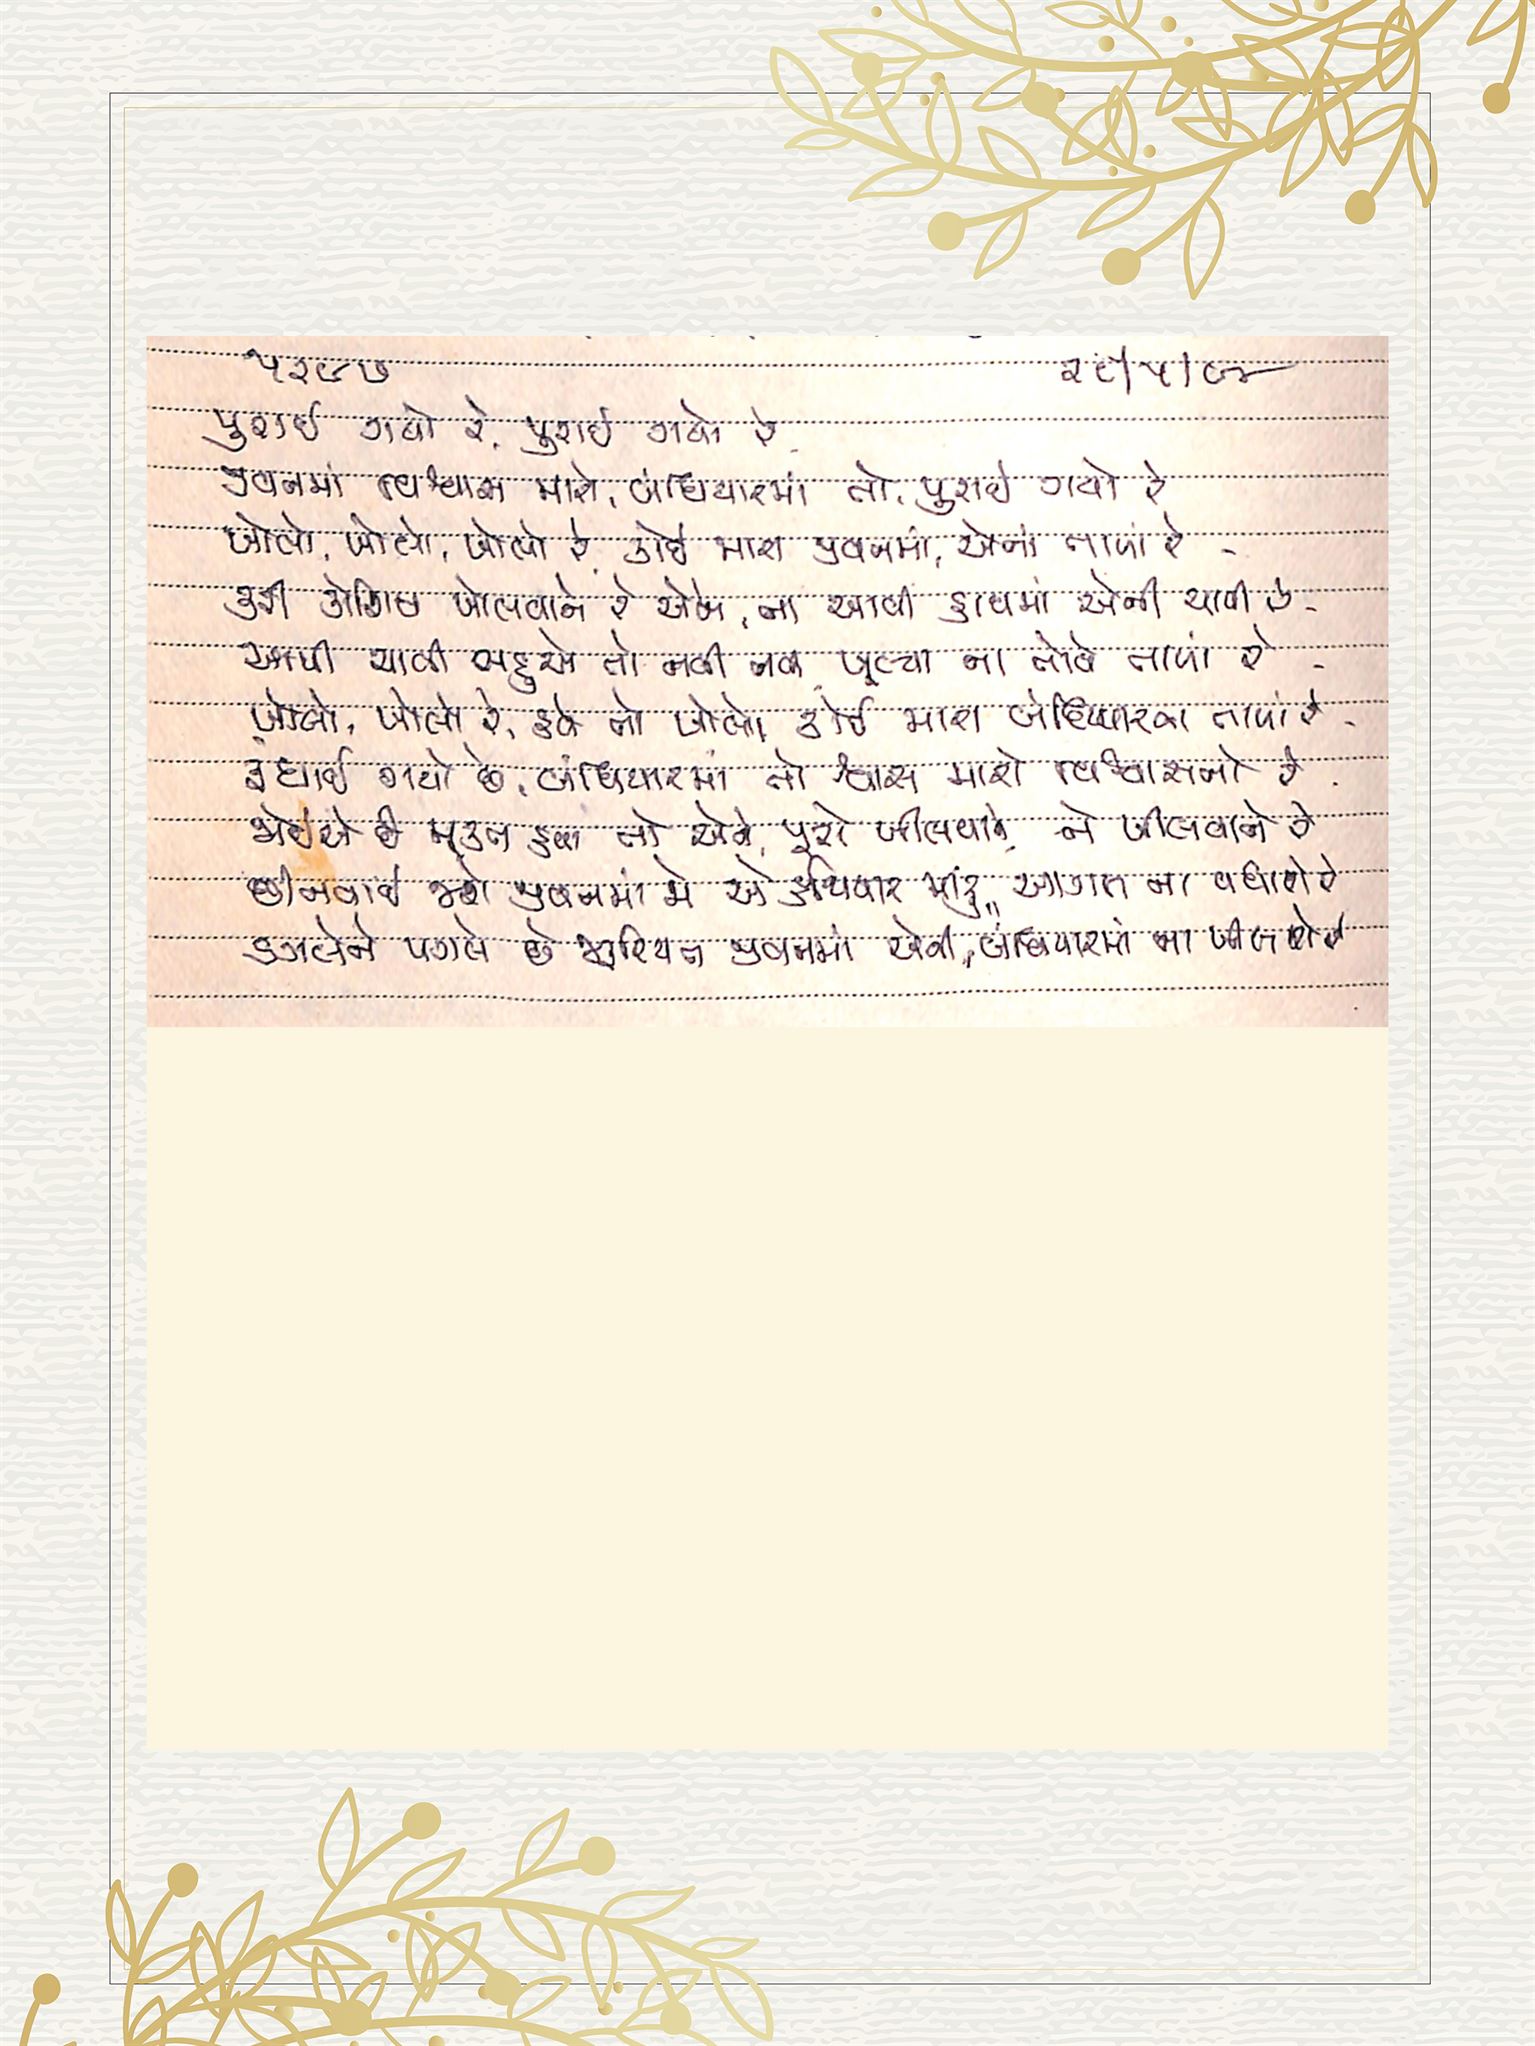 ૫૨૯૭ ૨૯/૫/૯૪
પુરાઈ ગયો રે, પુરાઈ ગયો રે
જીવનમાં વિશ્વાસ મારો, અંધિયારમાં તો, પુરાઈ ગયો રે
ખોલો, ખોલો, ખોલો રે, કોઈ મારા જીવનમાં, એનાં તાળાં રે -
કરી કોશિશ ખોલવાને રે એને, ના આવી હાથમાં એની ચાવી રે -
આપી ચાવી બહુએ તો નવી નવી, ખૂલ્યા ના તોયે તાળાં રે -
ખોલો, ખોલો રે, હવે તો ખોલો, કોઈ મારા અંધિયારના તાળાં રે -
રૂંધાઈ ગયો છે, અંધિયારમાં તો શ્વાસ મારો વિશ્વાસનો રે
જોઈએ છે મુક્ત હવા તો એને, પૂરો ખીલવાને ને ખીલવાને રે
છીનવાઈ જાશે જીવનમાં જો એ હથિયાર મારું, આગત ના વધાશે રે
ડગલેને પગલે છે જરૂરિયાત જીવનમાં એની, અંધિયારમાં ના ખીલશે રે